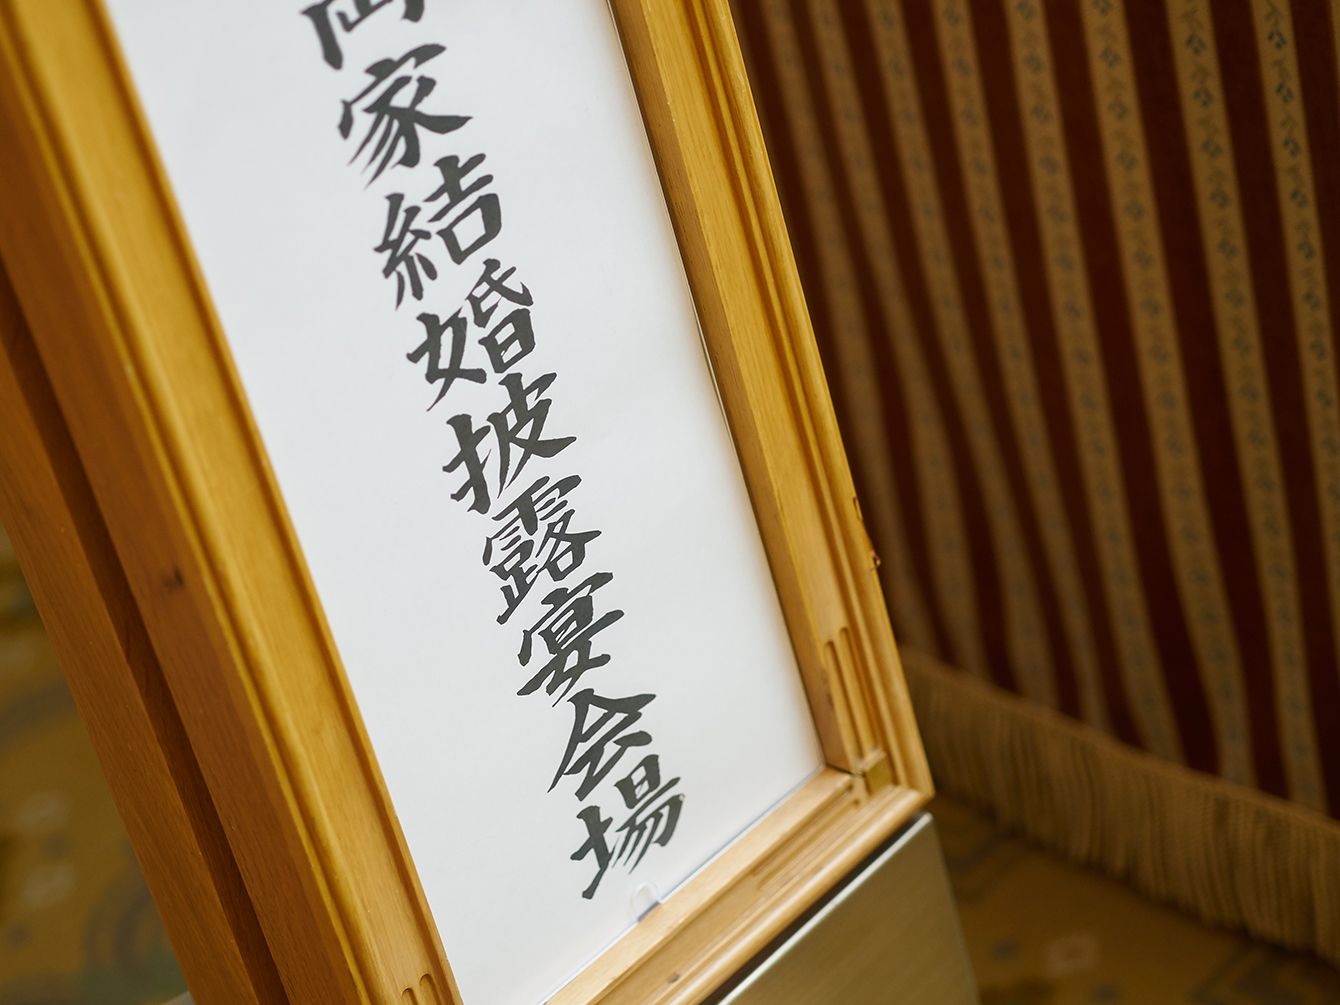 両家結婚披露宴会場